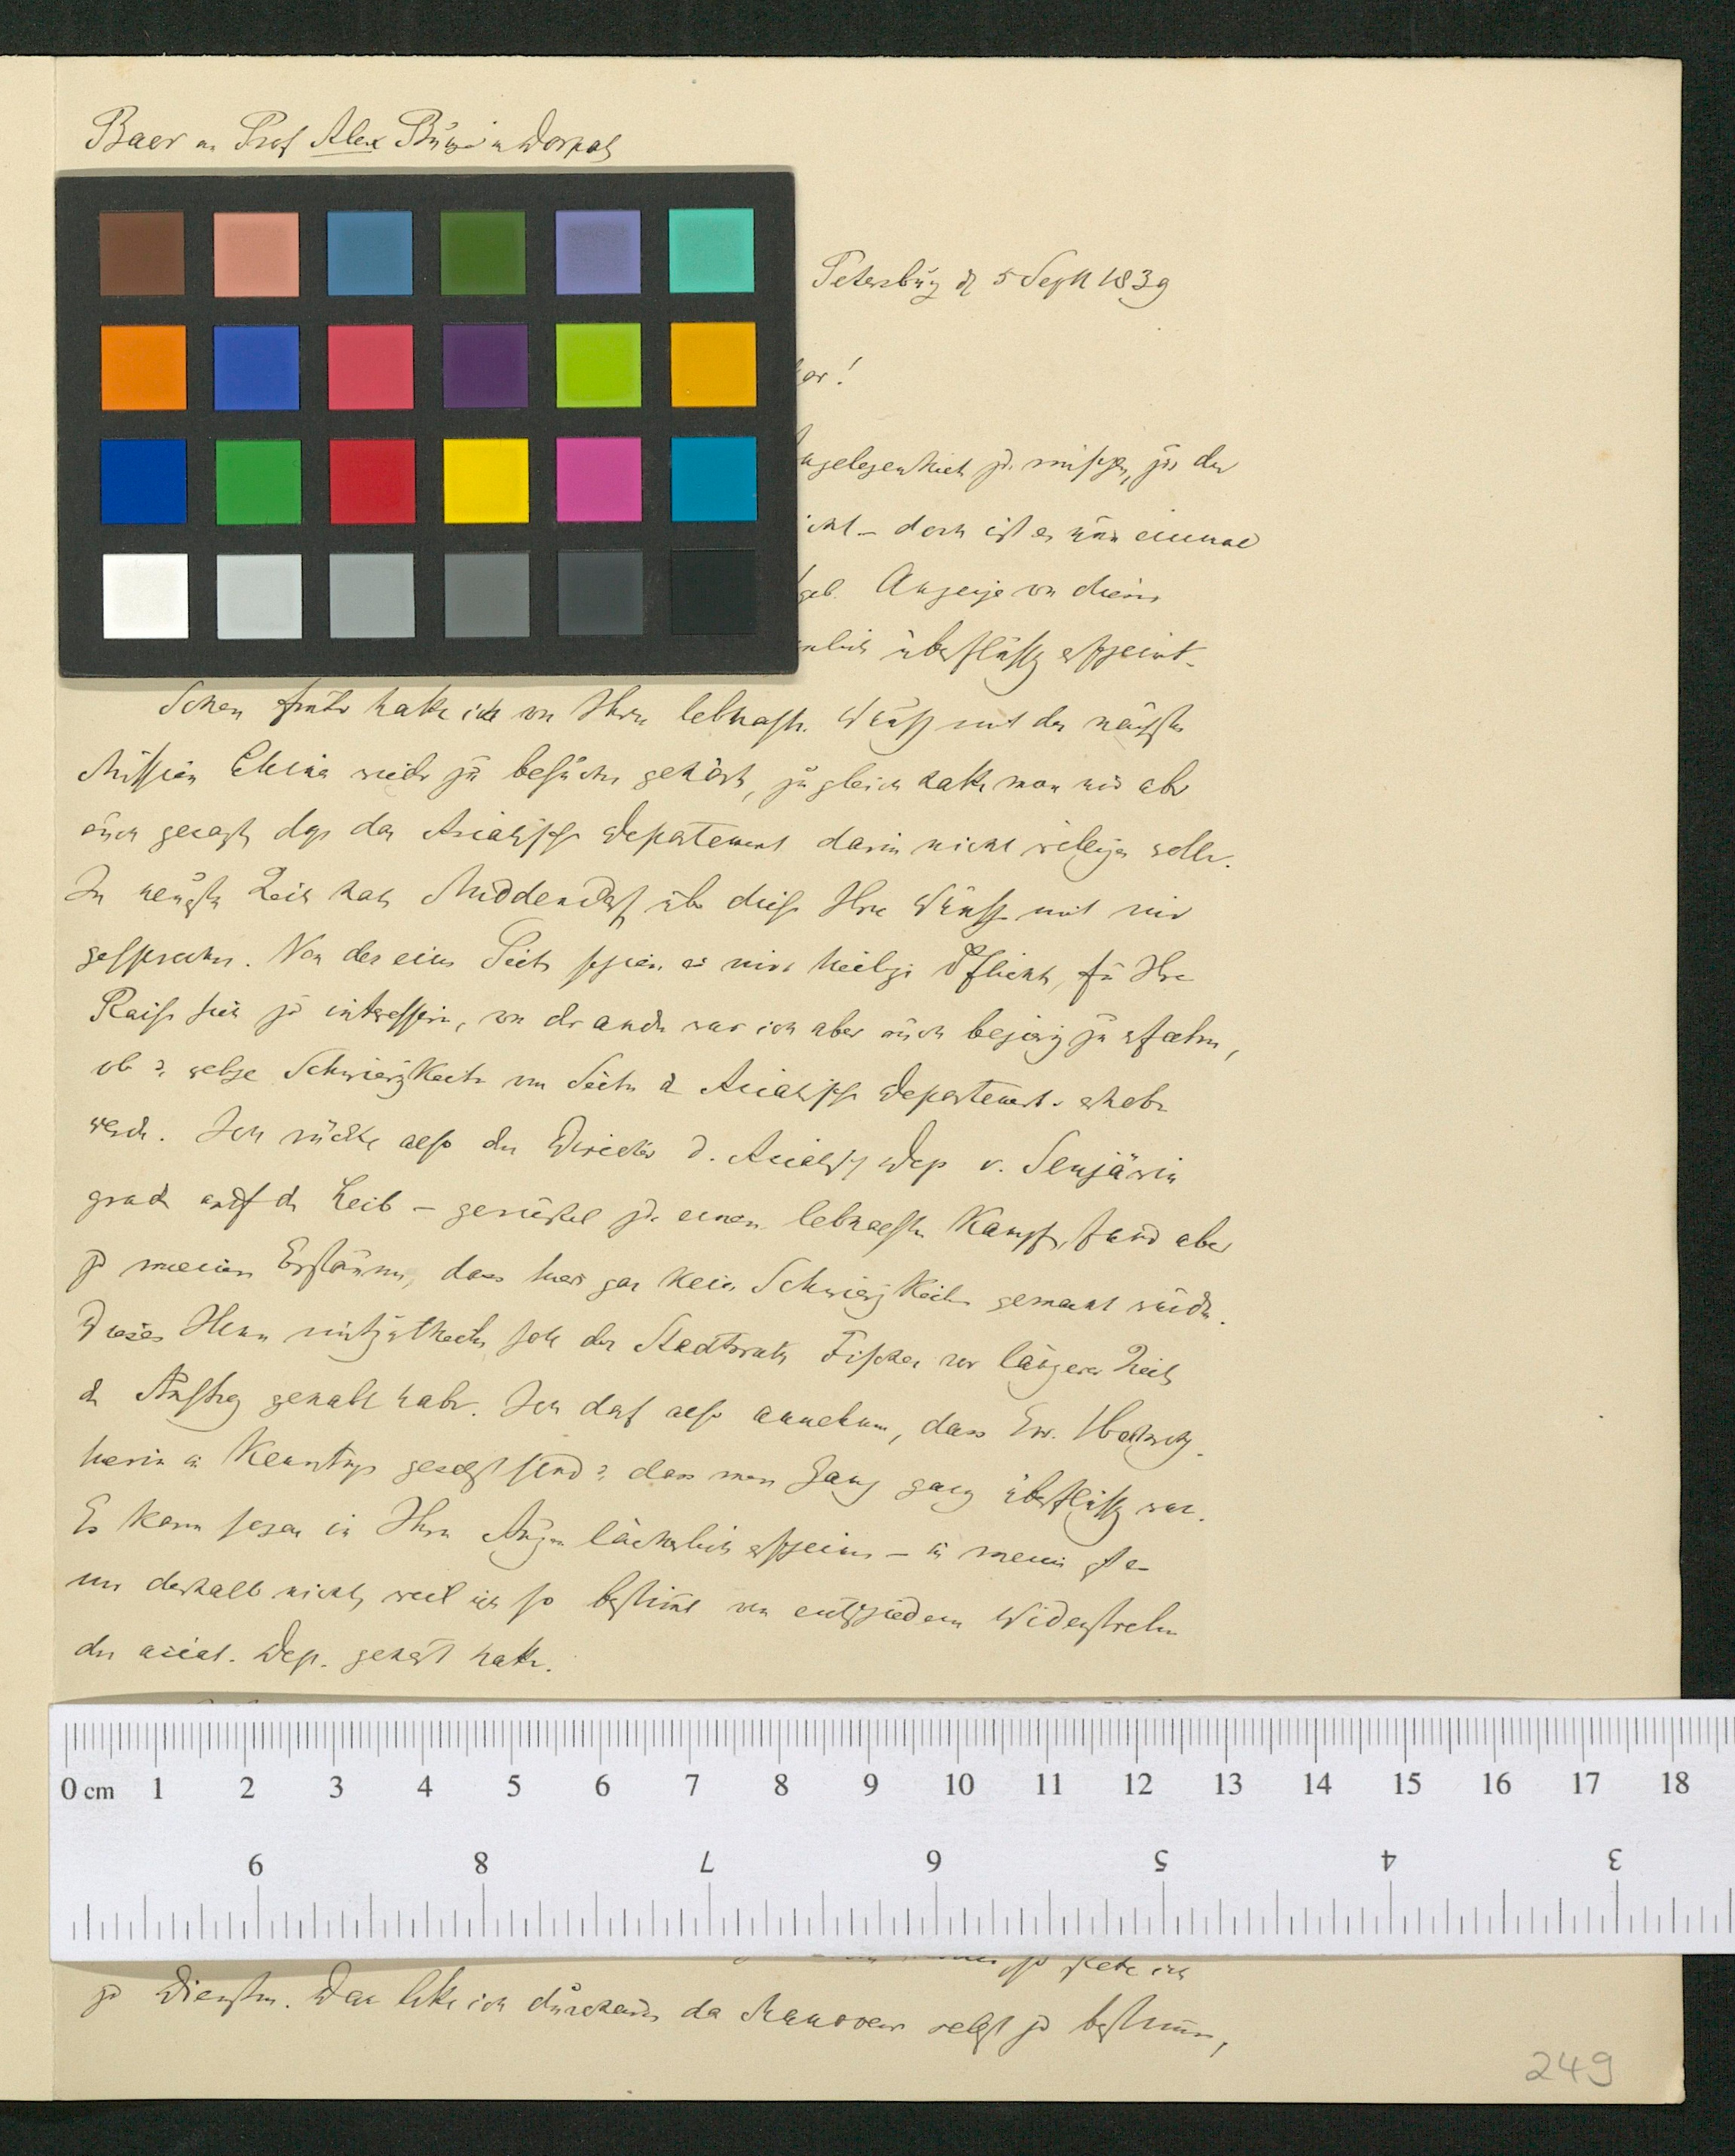 Baer an Prof Alex Bunge in Dorpat
Petersburg d 5 Sept 1839
or!
ngelegenheit zu mischen, für den
icht – doch ist es nun einmal
geb. Anzeige von dieser
nlich überflüssig erscheint.
Schon früher hatte ich von Ihren lebhaften Wunsch mit der nächsten
Mission China wieder zu besuchen gehört, zugleich hatte man mir aber
auch gesagt dass das Asiatische Departement darin nicht willigen wolle.
In neuester Zeit hat Middendorf über diese Ihre Wünsche mit mir
gesprochen. Von der einen Seite schien es mir heilige Pflicht, für Ihre
Reise mich zu interessiren, von der andern war ich aber auch begierig zu erfahren,
ob u. welche Schwierigkeiten von Seiten d Asiatischen Departements erhoben
werden. Ich rückte also den Director d. Asiatisch Dep v. Senjäwin
grade auf den Leib – gerüstet zu einem lebhaften Kampfe, fand aber
zu meinem Erstaunen, dass hier gar keine Schwierigkeiten gemacht würden.
Dieses Ihnen mitzutheilen soll der Staatsrath Fischer vor längerer Zeit
den Auftrag gehabt haben. Ich darf also annehmen, dass Ew. Hochwohlg.
hievon in Kenntniss gesetzt sind u. dass mein Gang ganz überflüssig war.
Es kann sogar in Ihren Augen lächerlich erscheinen – in meinen
nur deshalb nicht, weil ich so bestimmt von entschiedenem Widerstreben
des asiat. Dep. gehört hatte.
so stehe ich
zu Diensten. Das bitte ich durchaus das Manoever selbst zu bestimmen,
249
0 cm 1 2 3 4 5 6 7 8 9 10 11 12 13 14 15 16 17 18
9 8 7 6 5 4 3